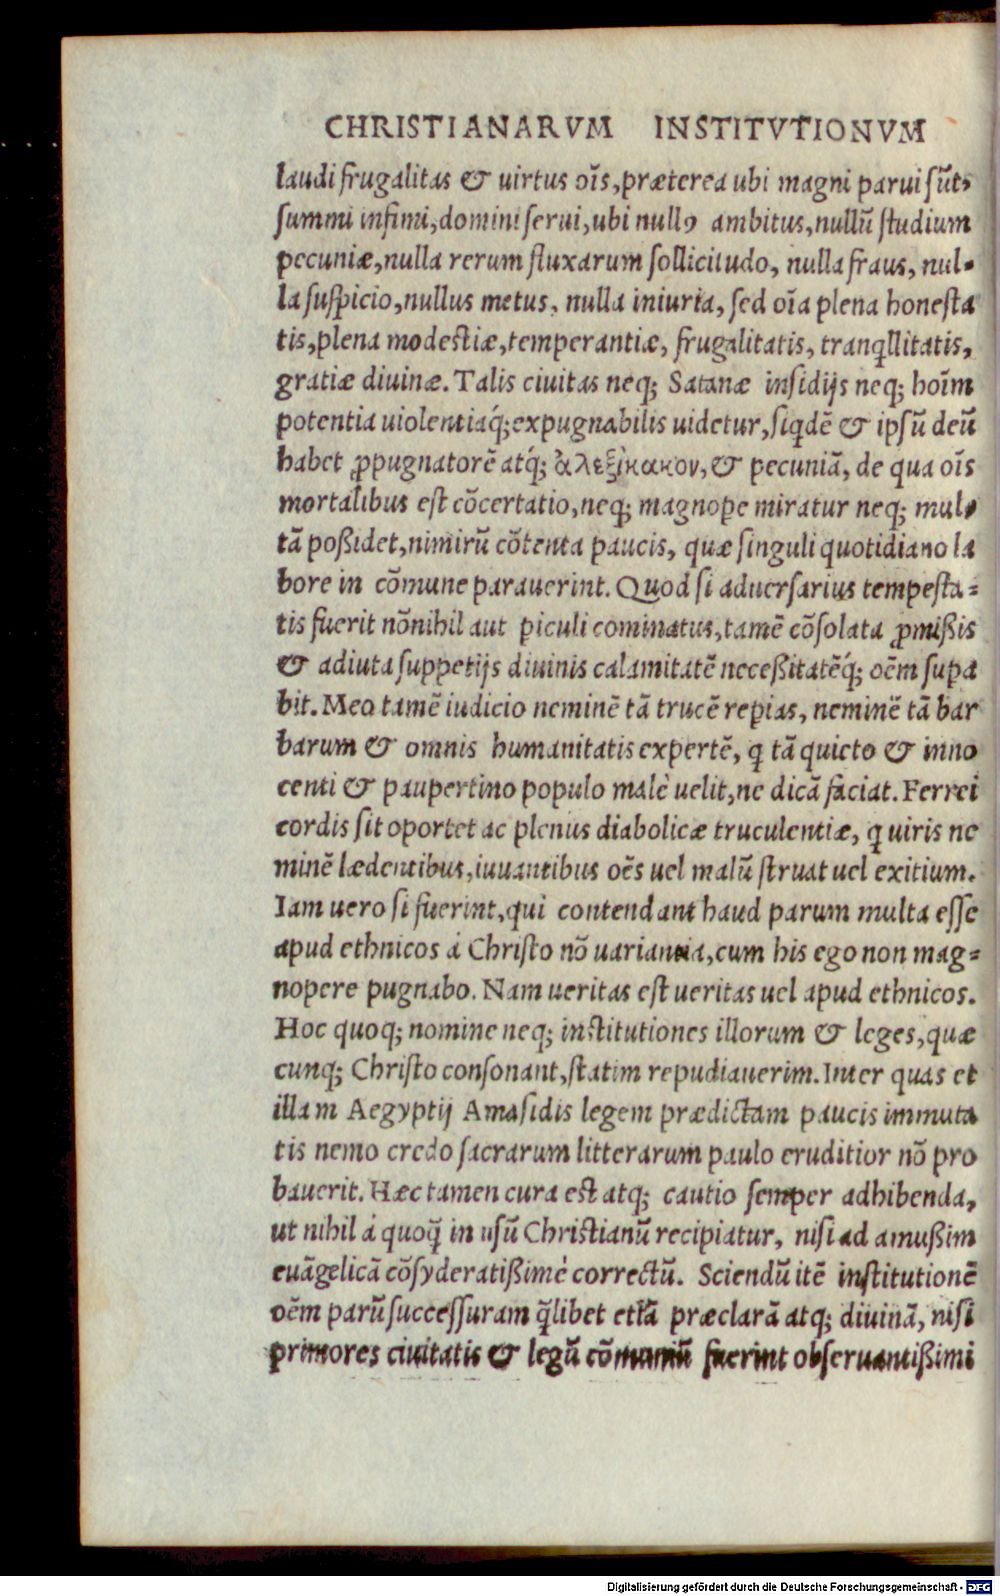 CHRISTIANARVM INSTITVTIONVM
laudi frugalitas & uirtus oĩs, præterea ubi magni parui sũt,
summi infimi, domini serui, ubi nullꝰ ambitus, nullũ studium
pecuniæ, nulla rerum fluxarum sollicitudo, nulla fraus, nul-
la suspicio, nullus metus, nulla iniuria, sed oĩa plena honesta
tis, plena modestiæ, temperantiæ, frugalitatis, tranqͥllitatis,
gratiæ diuinæ. Talis ciuitas neq; Satanæ insidijs neq; hoĩm
potentia uiolentiaq́; expugnabilis uidetur, siqͥdẽ & ipsũ deũ
habet ꝓpugnatorẽ atq; ἀλεξίκακον, & pecuniã, de qua oĩs
mortalibus est cõcertatio, neq; magnope miratur neq; mul-
tã poßidet, nimirũ cõtenta paucis, quæ singuli quotidiano la
bore in cõmune parauerint. Quod si aduersarius tempesta-
tis fuerit nõnihil aut piculi cominatus, tamẽ cõsolata ꝓmißis
& adiuta suppetijs diuinis calamitatẽ neceßitatẽq́; oẽm supa
bit. Meo tamẽ iudicio neminẽ tã trucẽ repias, neminẽ tã bar
barum & omnis humanitatis expertẽ, q tã quieto & inno
centi & paupertino populo malè uelit, ne dicã faciat. Ferrei
cordis sit oportet ac plenus diabolicæ truculentiæ, q uiris ne
minẽ lædentibus, iuuantibus oẽs uel malũ struat uel exitium.
Iam uero si fuerint, qui contendant haud parum multa esse
apud ethnicos á Christo nõ uariantia, cum his ego non mag-
nopere pugnabo. Nam ueritas est ueritas uel apud ethnicos.
Hoc quoq; nomine neq; institutiones illorum & leges, quæ
cunq; Christo consonant, statim repudiauerim. Inter quas et
illam Aegyptij Amasidis legem prædictam paucis immuta
tis nemo credo sacrarum litterarum paulo eruditior nõ pro
bauerit. Hæc tamen cura est atq; cautio semper adhibenda,
ut nihil á quoq̃ in usũ Christianũ recipiatur, nisi ad amußim
euãgelicã cõsyderatißimè correctũ. Sciendũ itẽ institutionẽ
oẽm parũ successuram q̃libet etiã præclarã atq; diuinã, nisi
primores ciuitatis & legũ cõmuniũ fuerint obseruantißimi
Digitalisierung gefördert durch die Deutsche Forschungsgemeinschaft - DFG